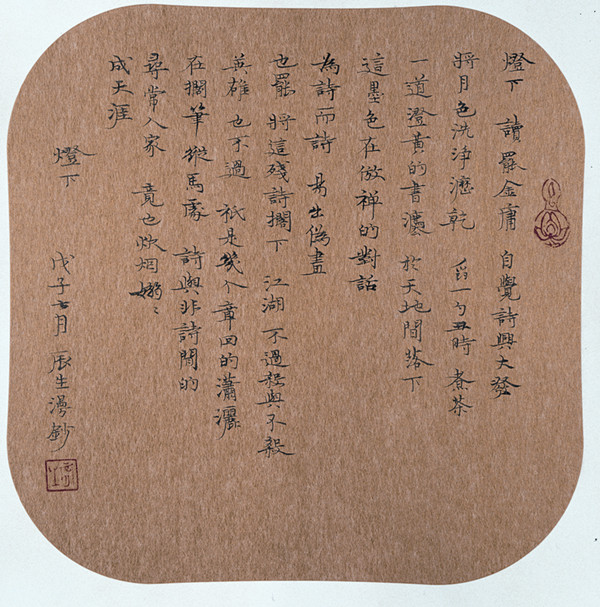 燈下 讀罷金庸 自覺詩興大發
將月色洗淨瀝乾 舀一勺丑時 煮茶
一道澄黃的書瀑 於天地間落下
這墨色在做禪的對話
為詩而詩 易出偽畫
也罷 將這殘詩擱下 江湖 不過殺與不殺
英雄 也不過 祇是幾個章回的瀟灑
在擱筆 縱馬處 詩與非詩間的
尋常人家 竟也炊烟嫋嫋
成天涯
燈下
戊子七月 辰生漫鈔